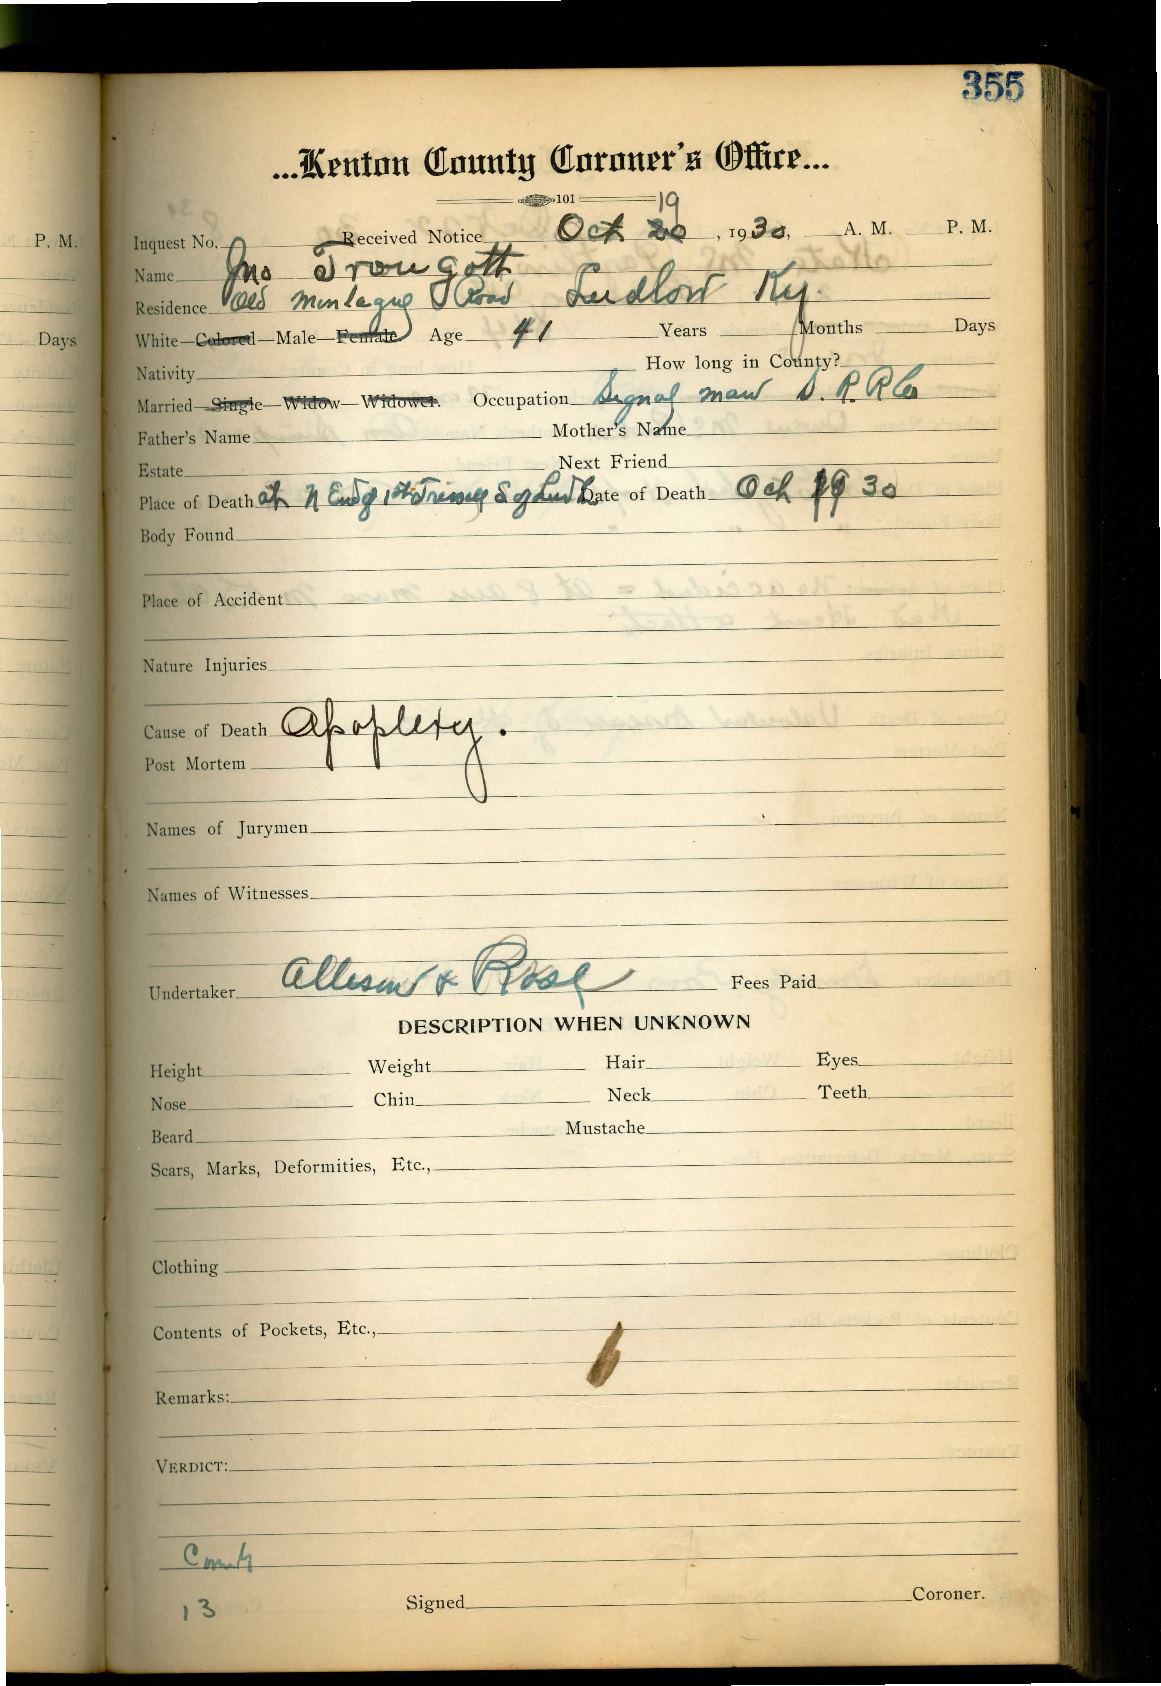 355
...Kenton County Coroner's Office...
101
19
Inquest No. Received Notice Oct 20, 1930, A. M. P. M.
Name Jno Trougott
Residence Old Montague Road Ludlow Ky.
White—Colored—Male—Female Age 41 Years Months Days
Nativity How long in County?
Married—Single—Widow—Widower. Occupation Signal man S. R. R Co
Father's Name Mother's Name
Estate Next Friend
Place of Death at N End of 1st S of Lud Date of Death Oct 19 30
Body Found
Place of Accident
Nature Injuries
Cause of Death Apoplexy.
Post Mortem
Names of Jurymen
Names of Witnesses
Undertaker Allison & Rose Fees Paid
DESCRIPTION WHEN UNKNOWN
Height Weight Hair Eyes
Nose Chin Neck Teeth
Beard Mustache
Scars, Marks, Deformities, Etc.,
Clothing
Contents of Pockets, Etc.,
Remarks:
VERDICT:
13 Signed Coroner.
P. M.
Days